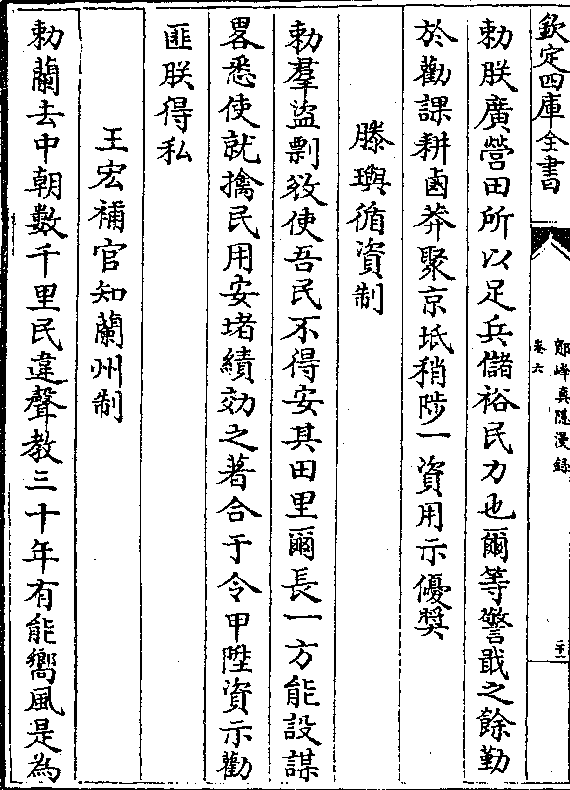 欽定四庫全書
鄮峰真隱漫録
卷六
勅朕廣營田所以足兵儲裕民力也爾等警戢之餘勤
於勸課耕鹵莽聚京坻稍陟一資用示優奬
滕璵循資制
勅羣盜剽殺使吾民不得安其田里爾長一方能設謀
畧悉使就擒民用安堵績効之著合于令甲陞資示勸
匪朕得私
王宏補官知蘭州制
勅蘭去中朝數千里民違聲教三十年有能嚮風是為